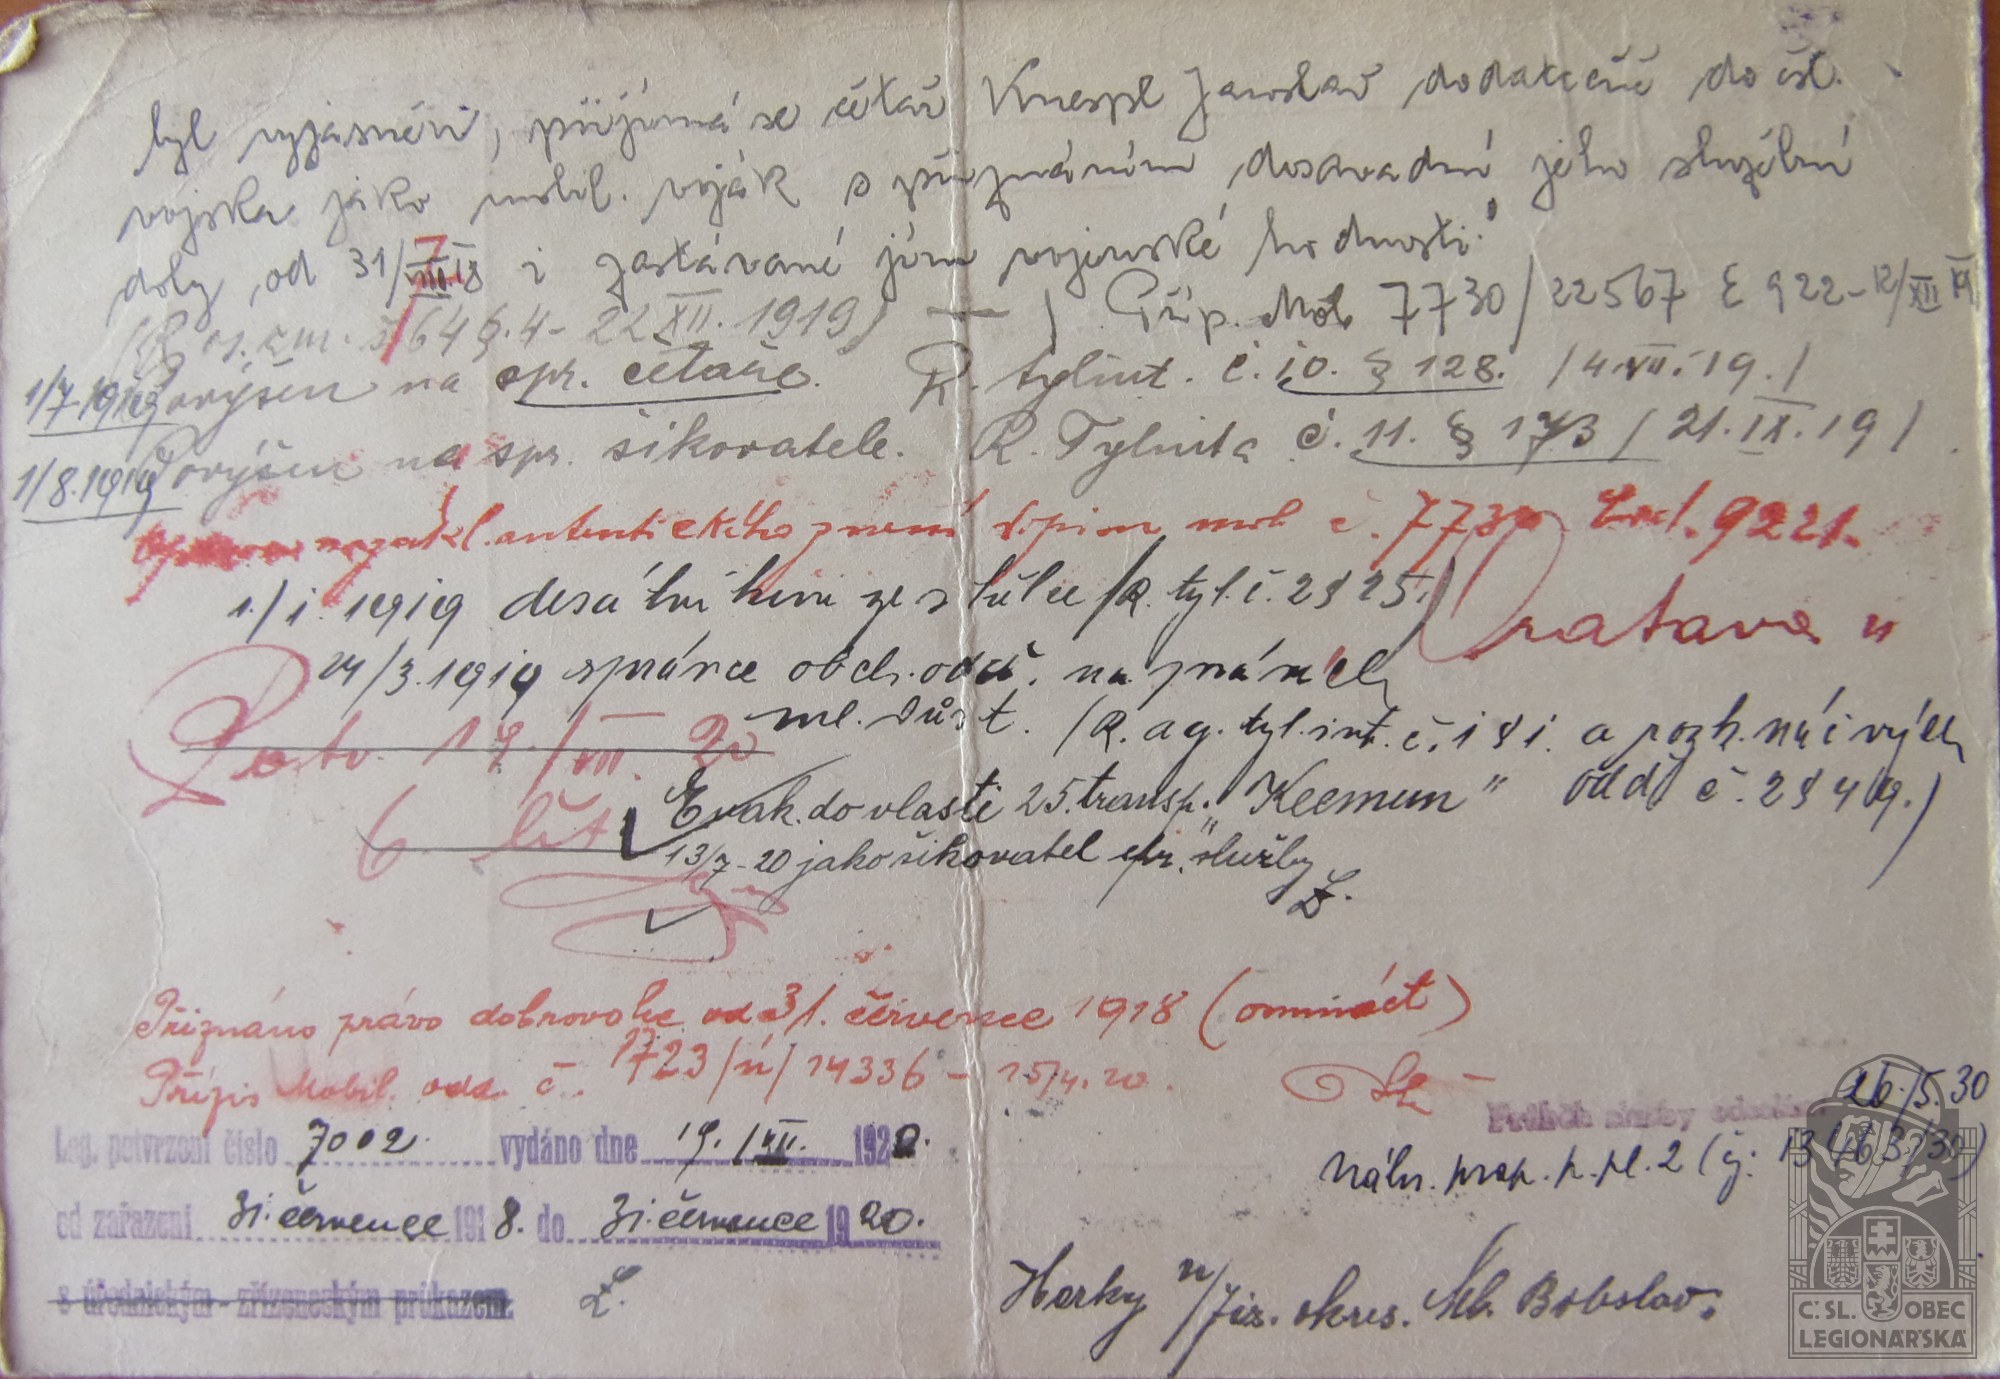 byl vyjasněn, přijímá se četař Knespl Jaroslav dodatečně do čsl.
vojska jako mobil. voják s přiznáním dosavadní jeho služební
doby, od 31/7 18 i zastávané jím vojenské hodnosti.
64 §.4 - 22 XII. 1919) — / Příp. Mob 7730/22567 E 922 - 12/XII 19
1/7.1919 Povýšen na spr. četaře. R. tylint. č. 10. § 128. /4.VII.19./
1/8.1919 Povýšen na spr. šikovatele. R. Tylinta č. 11. § 173 / 21.IX.19/
na zákl. autentického znění přípisu mob č. 7730
1./1. 1919 desátníkem ze střelce /R. tyl. č. 2 § 25./
24/3.1919 správce obch. odd. na právech
ml. důst. /R. ag. tyl. int. č. 1 § 1. a rozk.
odd. č. 2 § 4 /19.)
Potv. 19./VII. 20
6 lét
Evak. do vlasti 25. transp. "Keemun"
13/7-20 jako šikovatel spr. služby
Ž.
Přiznáno právo dobrovolce od 31. července 1918 (osmnáct)
Přípis Mobil. odd. č. 1723/n/14336 - 15/4.20.
Leg. potvrzení číslo 7002 vydáno dne 19./VII. 1920.
od zařazení 31. července 1918. do 31. července 1920.
s úřednickým - zřízeneckým průkazem.
Ž.
26./5.30
Náhr. prop. p. pl. 2 (čj: 13463/30)
Horky n/Jiz. okres. Ml. Boleslav.
Č.SL. OBEC
LEGIONÁŘSKÁ